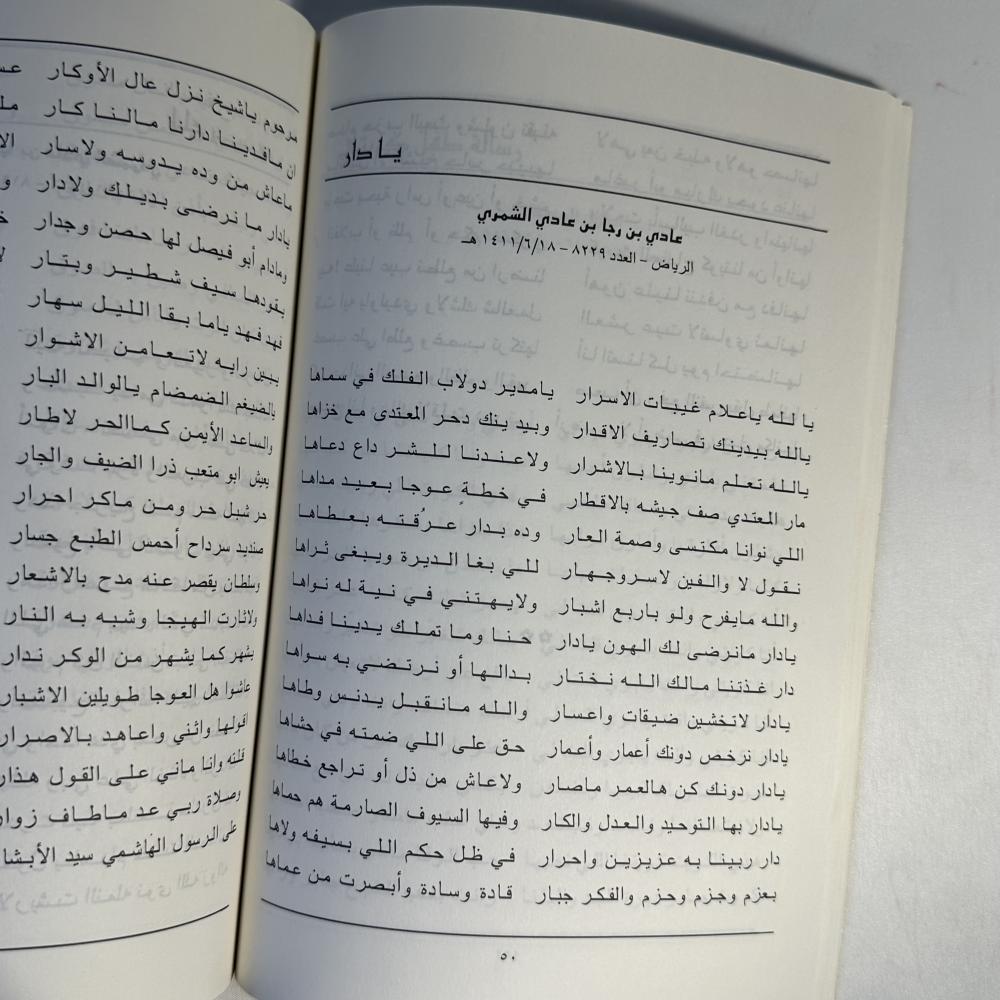 يا دار
عادي بن رجا بن عادي الشمري
الرياض - العدد ٨٢٢٩ - ١٤١١/٦/١٨ هـ
يا لله ياعلام غيبات الاسرار يامدير دولاب الفلك في سماها
يالله بيدينك تصاريف الاقدار وبيد ينك دحر المعتدى مع خزاها
يالله تعلم مانوينا بالاشرار ولاعندنا للشر داع دعاها
مار المعتدي صف جيشه بالاقطار في خطةٍ عوجا بعيد مداها
اللي نوانا مكتسى وصمة العار وده بدار عرُقته بعطاها
نقول لا والفين لاسروجهار للي بغا الديرة ويبغى ثراها
والله مايفرح ولو باربع اشبار ولايهتني في نية له نواها
يادار مانرضى لك الهون يادار حنا وما تملك يدينا فداها
دار غذتنا مالك الله نختار بدالها أو نرتضي به سواها
يادار لاتخشين ضيقات واعسار والله مانقبل يدنس وطاها
يادار نرخص دونك أعمار وأعمار حق على اللي ضمته في حشاها
يادار دونك كن هالعمر ماصار ولاعاش من ذل أو تراجع خطاها
يادار بها التوحيد والعدل والكار وفيها السيوف الصارمة هم حماها
دار ربينا به عزيزين واحرار في ظل حكم اللي بسيفه ولاها
بعزم وجزم وحزم والفكر جبار قادة وسادة وأبصرت من عماها
٥٠
مرحوم ياشيخ نزل عال الأوكار
ان مافدينا دارنا مالنا كار
ماعاش من وده يدوسه ولاسار
يادار مانرضى بديلك ولادار
ومادام أبو فيصل لها حصن وجدار
يقودها سيف شطير وبتار
فهد فهد ياما بقا الليل سهار
يبين رايه لاتعامن الاشوار
بالضيغم الضمضام يالوالد البار
والساعد الأيمن كماالحر لاطار
يعيش ابو متعب ذرا الضيف والجار
حر شبل حر ومن ماكر احرار
صنديد سرداح أحمس الطبع جسار
وسلطان يقصر عنه مدح بالاشعار
ولاثارت الهيجا وشبه به النار
يشهر كما يشهز من الوكر ندار
عاشوا هل العوجا طويلين الاشبار
اقولها واثني واعاهد بالاصرار
قلته وانا ماني على القول هذار
وصلاة ربي عد ماطاف زوار
على الرسول الهاشمي سيد